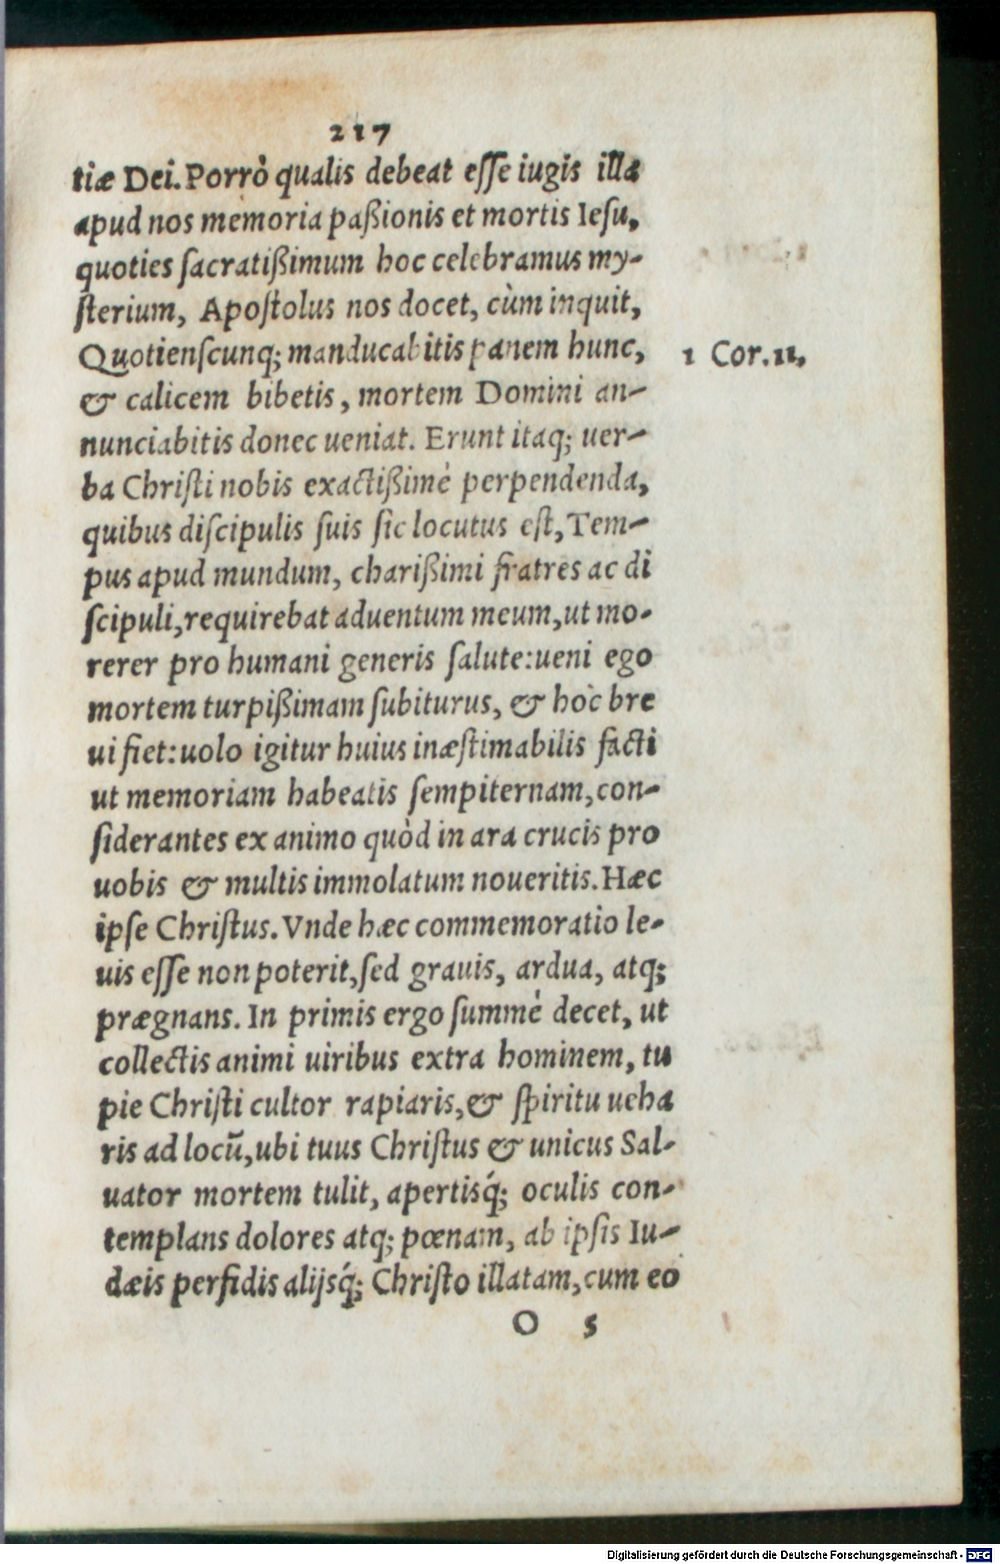 217
tiæ Dei. Porrò qualis debeat eſſe iugis illa
apud nos memoria paßionis et mortis Ieſu,
quoties ſacratißimum hoc celebramus my-
ſterium, Apoſtolus nos docet, cùm inquit,
Quotienſcunq; manducabitis panem hunc,
1 Cor.11,
& calicem bibetis, mortem Domini an-
nunciabitis donec ueniat. Erunt itaq; uer-
ba Chriſti nobis exactißimè perpendenda,
quibus diſcipulis ſuis ſic locutus eſt, Tem-
pus apud mundum, charißimi fratres ac di
ſcipuli, requirebat aduentum meum, ut mo-
rerer pro humani generis ſalute: ueni ego
mortem turpißimam ſubiturus, & hoc bre
ui fiet: uolo igitur huius inæſtimabilis facti
ut memoriam habeatis ſempiternam, con-
ſiderantes ex animo quòd in ara crucis pro
uobis & multis immolatum noueritis. Hæc
ipſe Chriſtus. Vnde hæc commemoratio le-
uis eſſe non poterit, ſed grauis, ardua, atq;
prægnans. In primis ergo ſummè decet, ut
collectis animi uiribus extra hominem, tu
pie Chriſti cultor rapiaris, & ſpiritu ueha
ris ad locū, ubi tuus Chriſtus & unicus Sal-
uator mortem tulit, apertisq́; oculis con-
templans dolores atq; pœnam, ab ipſis Iu-
dæis perfidis alijsq́; Chriſto illatam, cum eo
O 5
Digitalisierung gefördert durch die Deutsche Forschungsgemeinschaft - DFG